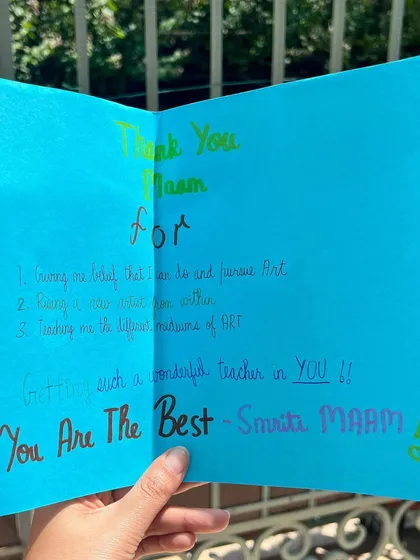 Thank You
Maam
for
1. Giving me belief that I can do and pursue Art
2. Rising a new artist from within
3. Teaching me the different mediums of ART
Getting such a wonderful teacher in YOU !!
You Are The Best - Smriti MAAM